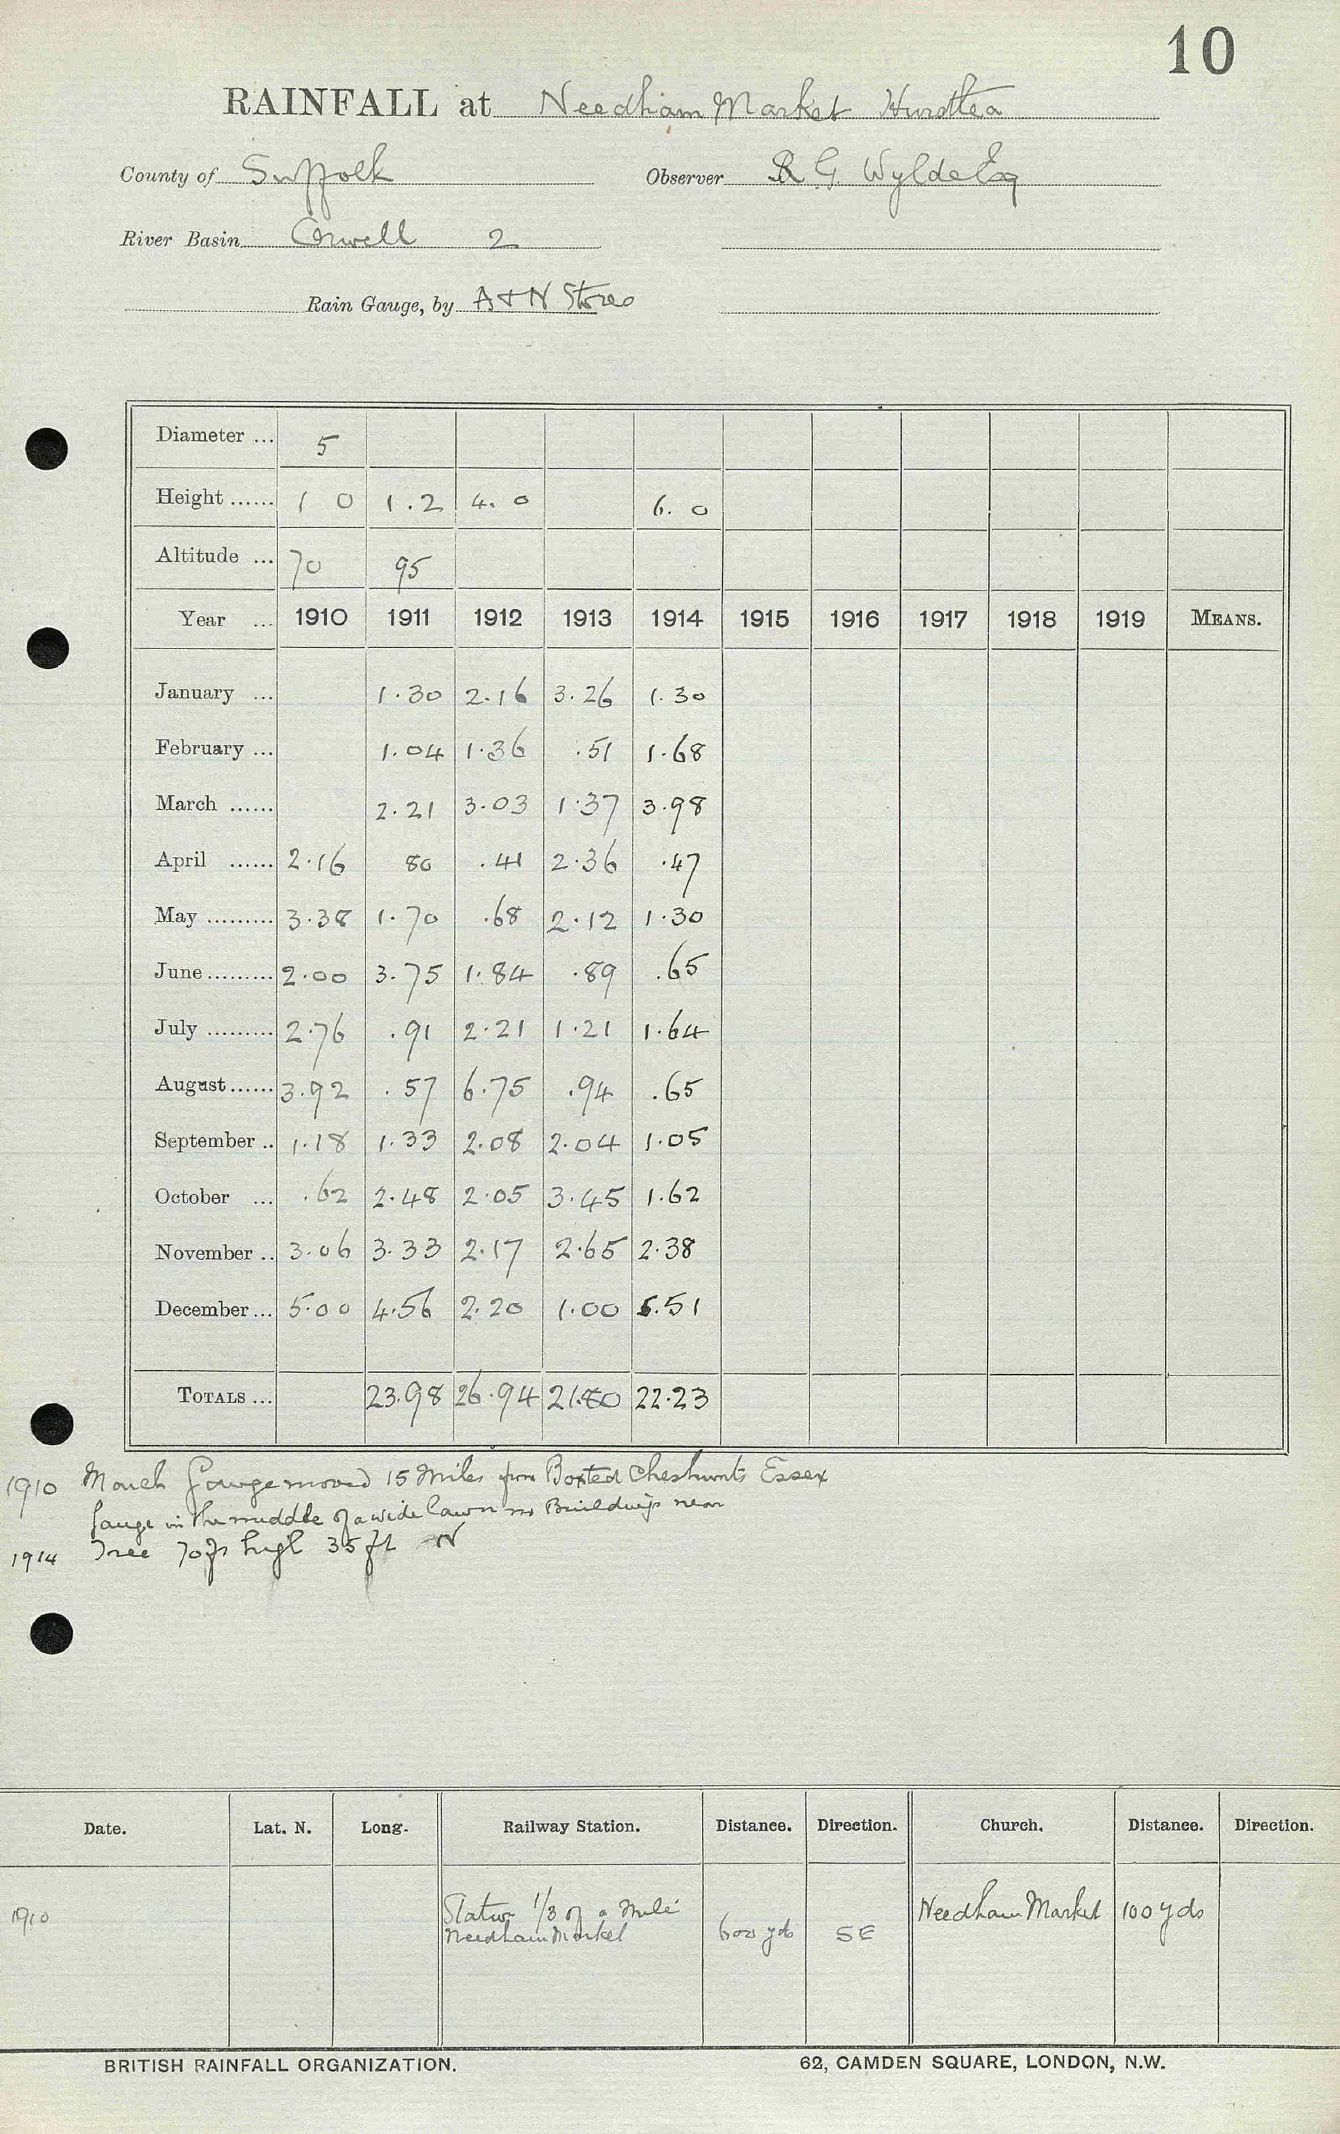 10
RAINFALL at Needham Market Hurstlea
County of Suffolk Observer R G Wylde Esq
River Basin Orwell 2
Rain Gauge, by A & N Stores
Diameter ... 5
Height ...... 1 0 1.2 4.0 6.0
Altitude ... 70 95
Year ... 1910 1911 1912 1913 1914 1915 1916 1917 1918 1919 MEANS.
January ... 1.30 2.16 3.26 1.30
February ... 1.04 1.36 .51 1.68
March ...... 2.21 3.03 1.37 3.98
April ...... 2.16 80 .41 2.36 .47
May ......... 3.38 1.70 .68 2.12 1.30
June ......... 2.00 3.75 1.84 .89 .65
July ......... 2.76 .91 2.21 1.21 1.64
August ...... 3.92 .57 6.75 .94 .65
September .. 1.18 1.33 2.08 2.04 1.05
October ... .62 2.48 2.05 3.45 1.62
November .. 3.06 3.33 2.17 2.65 2.38
December ... 5.00 4.56 2.20 1.00 5.51
TOTALS ... 23.98 26.94 21.80 22.23
1910 March Gauge moved 15 miles from Boxted Cheshunts Essex
Gauge in the middle of a wide lawn no Buildings near
1914 Tree 70ft high 35 ft N
Date. Lat. N. Long. Railway Station. Distance. Direction. Church. Distance. Direction.
1910 Station 1/3 of a mile Needham Market 100 yds
Needham Market 600 yds SE
BRITISH RAINFALL ORGANIZATION. 62, CAMDEN SQUARE, LONDON, N.W.